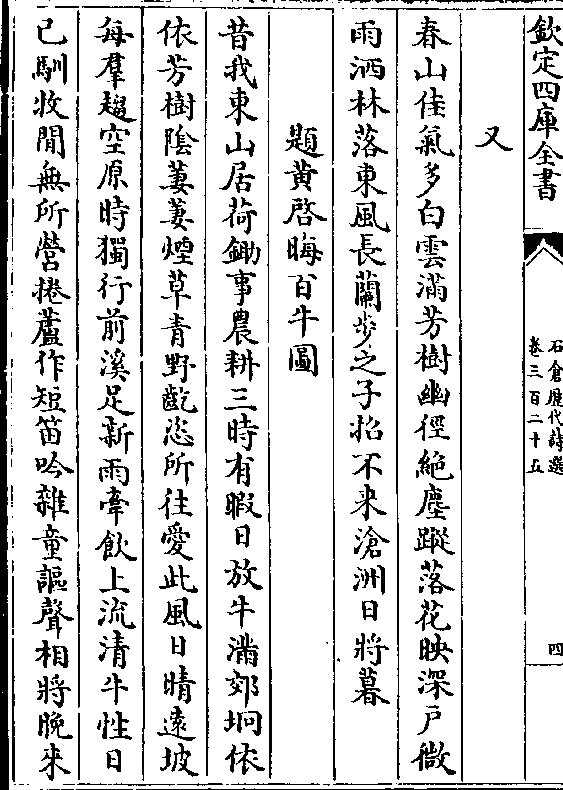 欽定四庫全書
石倉歷代詩選
卷三百二十五
四
又
春山佳氣多白雲滿芳樹幽徑絶塵蹤落花映深戸微
雨洒林落東風長蘭步之子招不来滄洲日將暮
題黃啓晦百牛圖
昔我東山居荷鋤事農耕三時有暇日放牛滿郊坰依
依芳樹陰萋萋煙草青野齕恣所往愛此風日晴逺坡
每羣趨空原時獨行前溪足新雨牽飲上流清牛性日
已馴牧閒無所營捲蘆作短笛吟雜童謳聲相將晚来